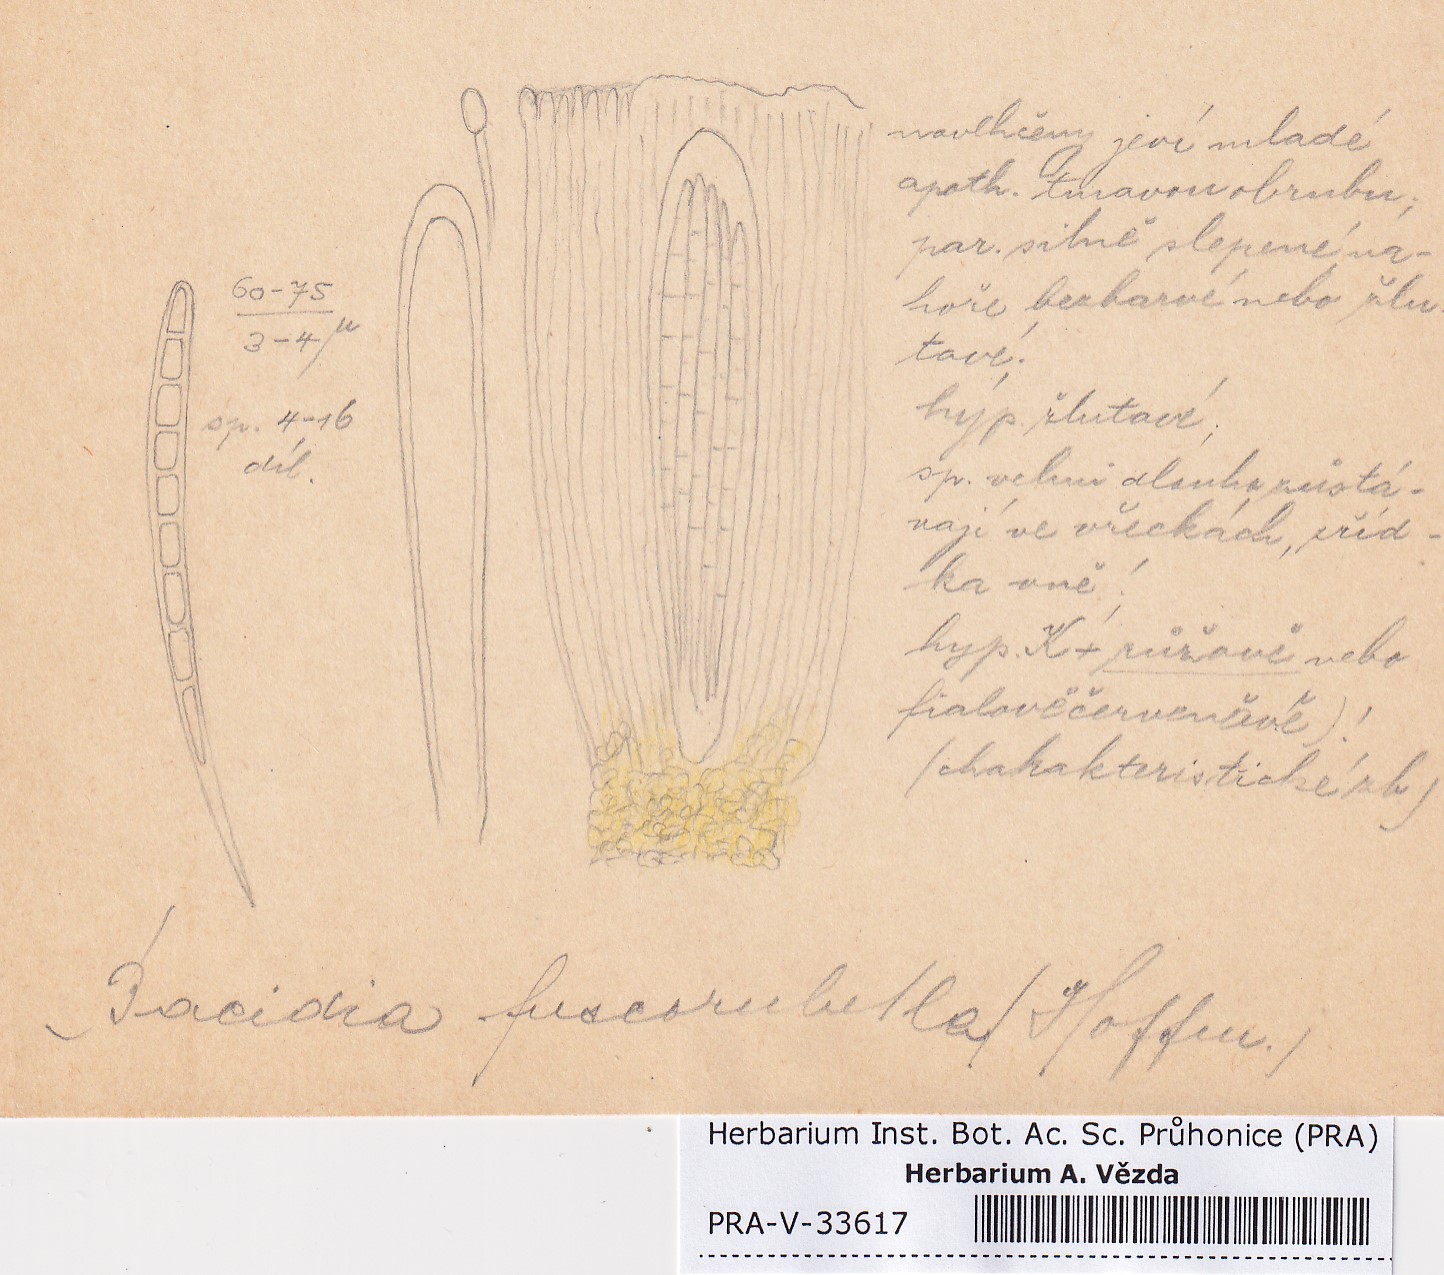 60-75
3-4 µ
sp. 4-16
díl.
navlhčeny jeví mladé
apoth. tmavou obrubu;
par. silně slepené na-
hoře bezbarvé nebo žlu-
tavé;
hyp. žlutavé;
sp. velmi dlouho zůstá-
vají ve vřeckách, zříd-
ka vně!
hyp. K+ růžově nebo
fialověčervenavě)!
(charakteristické zb)
Bacidia fuscorubella (Hoffm.)
Herbarium Inst. Bot. Ac. Sc. Průhonice (PRA)
Herbarium A. Vězda
PRA-V-33617